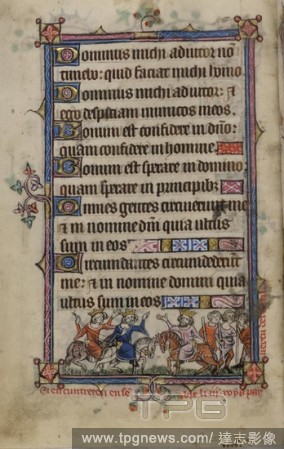 Dominus michi adiutor nō
timebo: quid faciat michi homo
Dominus michi adiutor: ⁊
ego despiciam inimicos meos.
Bonum est confidere in dño:
quam confidere in homine.
Bonum est sperare in domino
quam sperare in principib;
Omnes gentes circuierūt me
et in nomine dñi quia ultus
sum in eos
Circumdantes circumdederūt
me: ⁊ in nomine domini quia
ultus sum in eos
TPG
www.tpgnews.com/ 達志影像